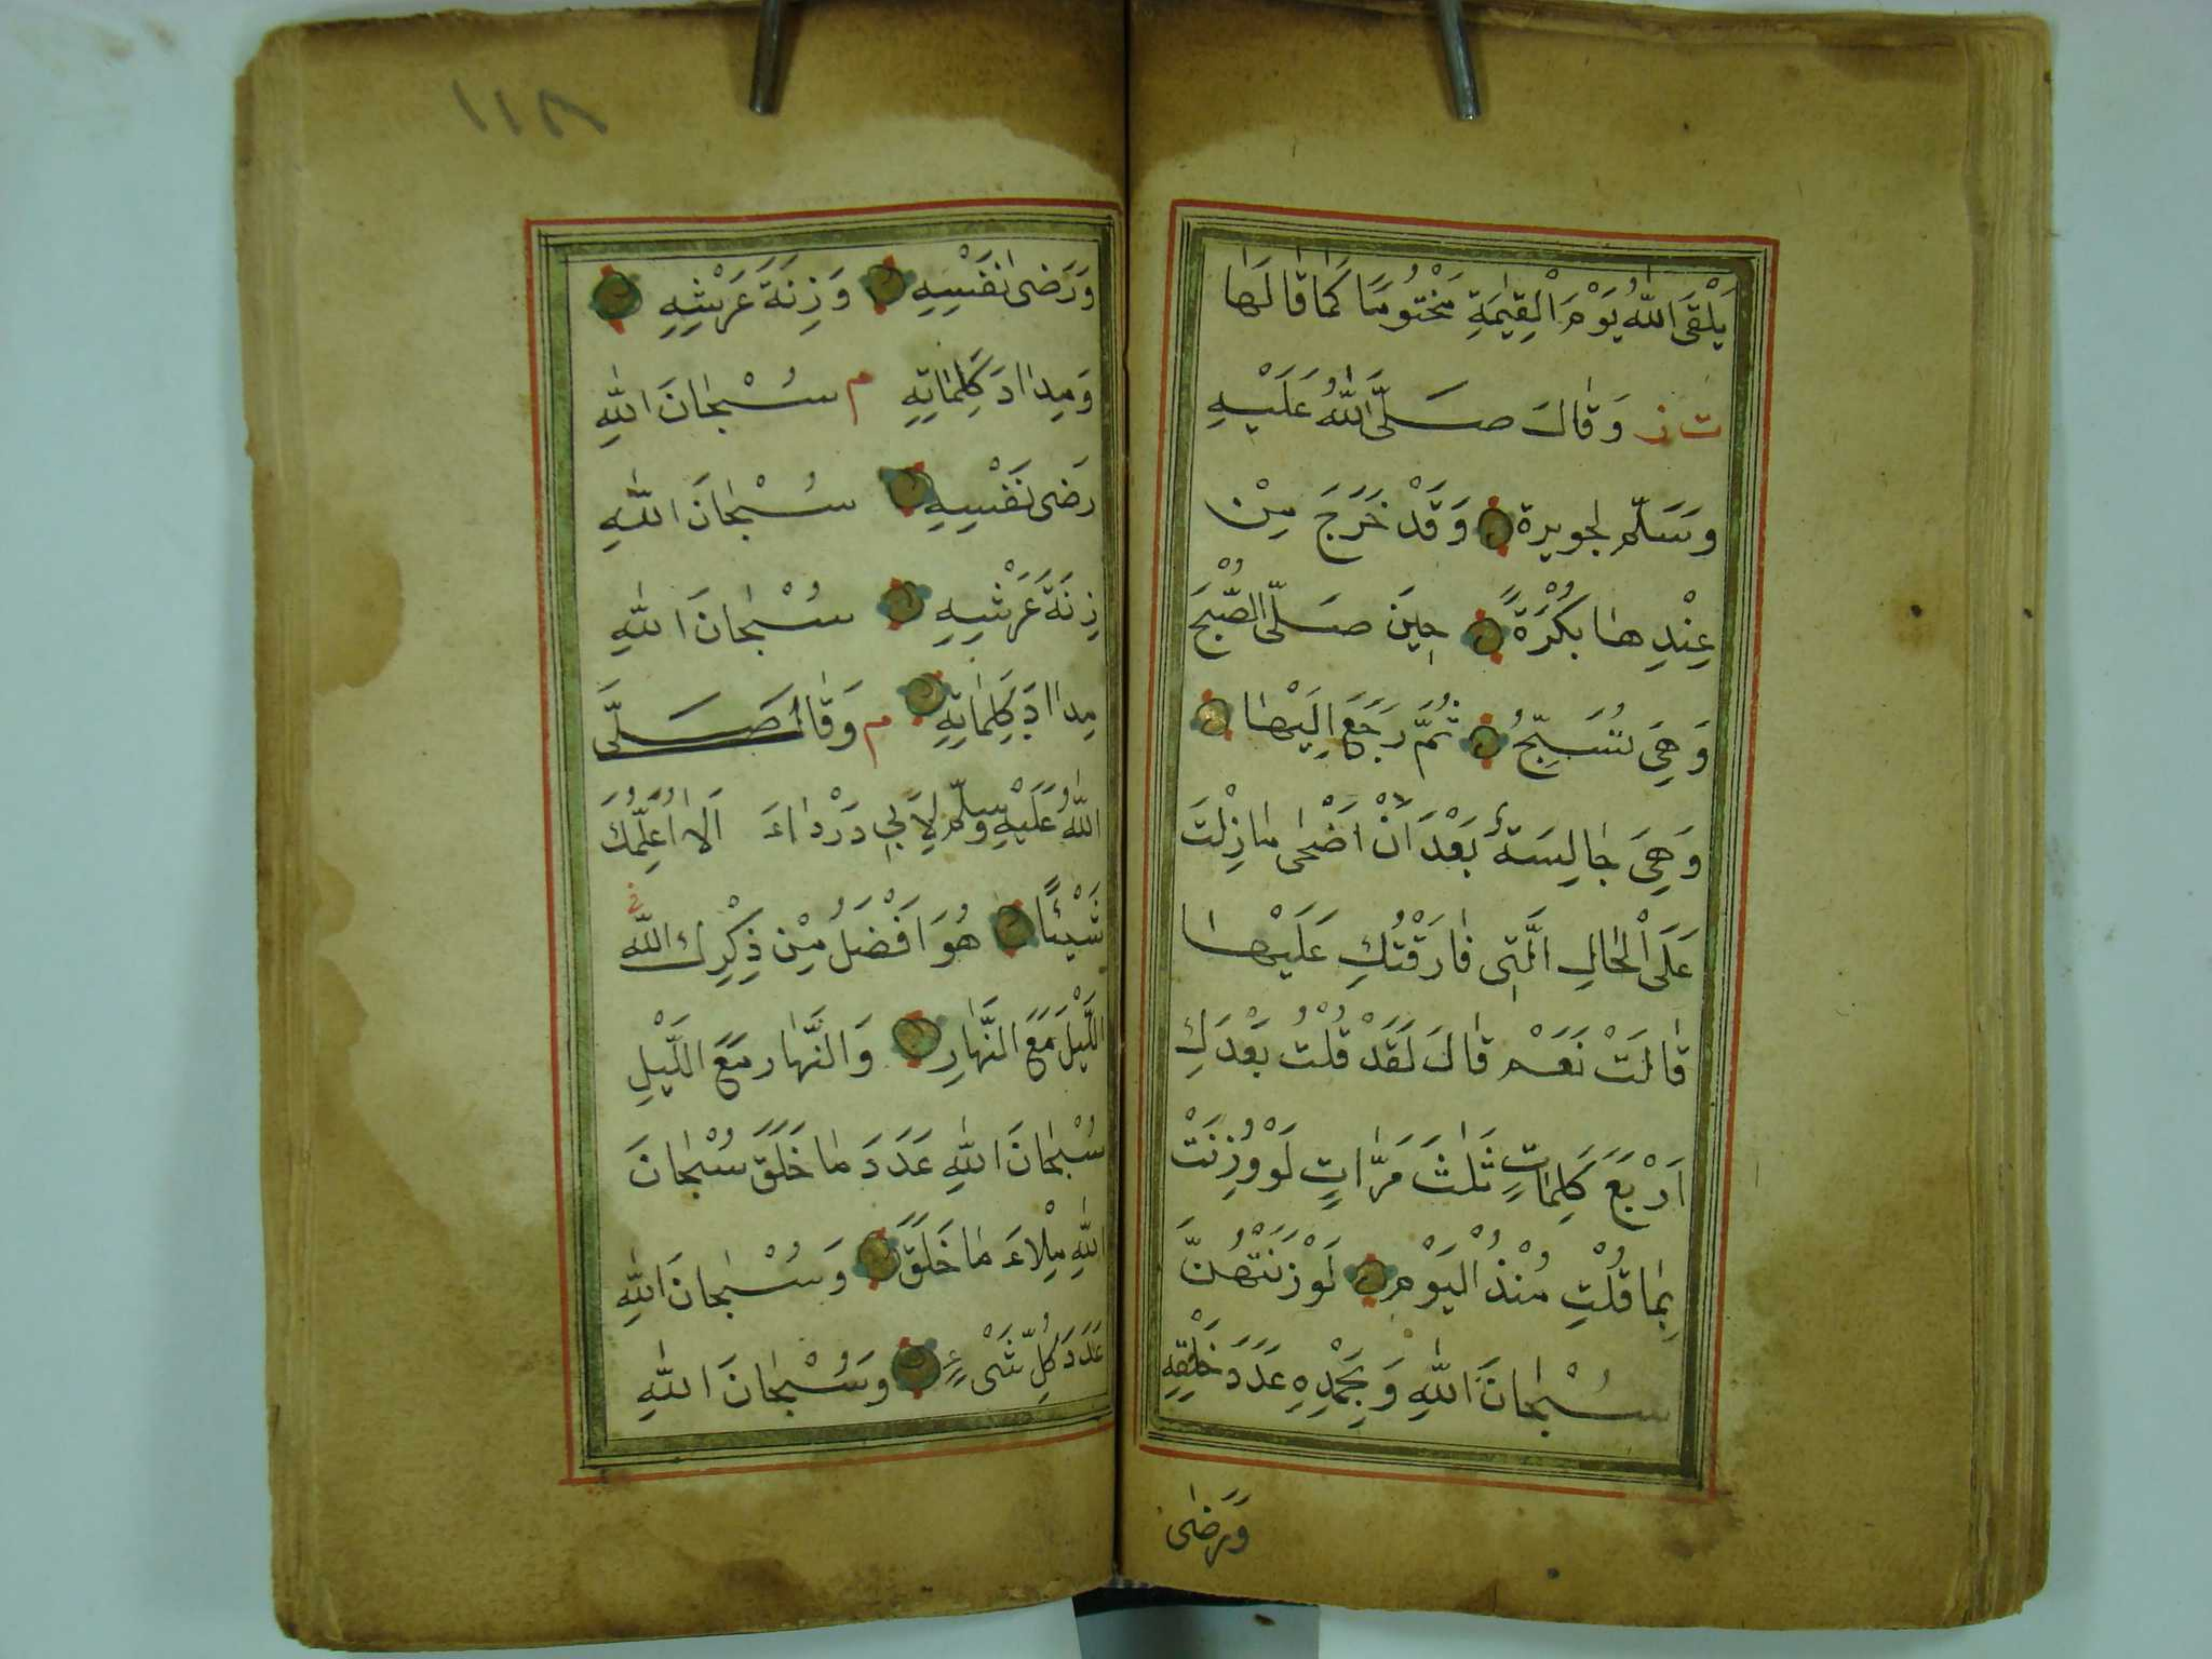 يَلْقَى اللّٰهُ يَوْمَ الْقِيٰمَةِ مَخْتُومًا كَمٰا قٰالَهٰا
ت ز وَقٰالَ صَلَّى اللّٰهُ عَلَيْهِ
وَسَلّم لجويرة وَقَدْ خَرَجَ مِنْ
عِنْدِهٰا بُكْرَةً حِينَ صَلَّى الصُّبْحَ
وَهِىَ تُسَبِّحُ ثُمَّ رَجَعَ اِلَيْهٰا
وَهِىَ جٰالِسَةٌ بَعْدَ اَنْ اَضْحٰى مٰا زِلْتَ
عَلَى الْحٰالِ الَّتِى فٰارَقْتُكِ عَلَيْهٰا
قٰالَتْ نَعَمْ قٰالَ لَقَدْ قُلْتُ بَعْدَكِ
اَرْبَعَ كَلِمٰاتٍ ثَلٰثَ مَرّٰاتٍ لَوْ وُزِنَتْ
بِمٰا قُلْتِ مُنْذُ الْيَوْمِ لَوَزَنَتْهُنَّ
سُبْحٰانَ اللّٰهِ وَبِحَمْدِهِ عَدَدَ خَلْقِهِ
وَرَضٰى
١١٨
وَرَضٰى نَفْسِهِ وَزِنَةَ عَرْشِهِ
وَمِدٰادَ كَلِمٰاتِهِ م سُبْحٰانَ اللّٰهِ
رَضٰى نَفْسِهِ سُبْحٰانَ اللّٰهِ
زِنَةَ عَرْشِهِ سُبْحٰانَ اللّٰهِ
مِدٰادَ كَلِمٰاتِهِ م وَقٰالَ صَلَّى
اللّٰهُ عَلَيْهِ وسلّم لِاَبِي دَرْدٰاءَ اَلاٰ اُعَلِّمُكَ
شَيْئًا هُوَ اَفْضَلُ مِنْ ذِكْرِكَ اللّٰه
اللَّيْلَ مَعَ النَّهٰارِ وَالنَّهٰار مَعَ اللَّيْلِ
سُبْحٰانَ اللّٰهِ عَدَدَ مٰا خَلَقَ سُبْحٰانَ
اللّٰهِ مِلْاءَ مٰا خَلَقَ وَسُبْحٰانَ اللّٰهِ
عَدَدَ كُلِّ شَىْءٍ وَسُبْحٰانَ اللّٰهِ